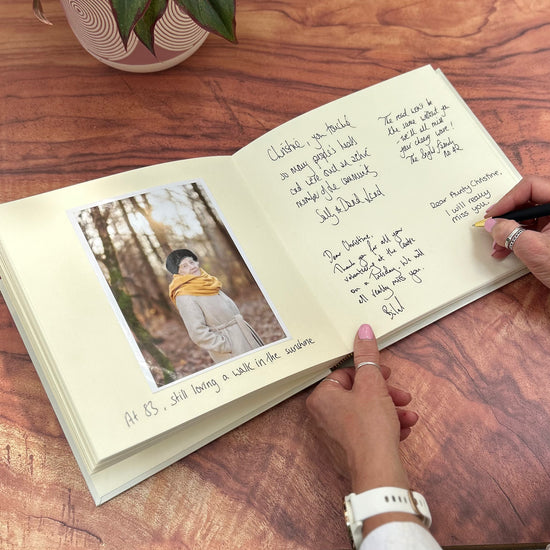 At 83, still loving a walk in the sunshine
Christine, you touched
so many people's hearts
and were such an active
member of the community
Sally & David
The road won't be
the same without you
we'll all miss
your cheery wave!
The Family
No 42
Dear Christine,
Thank you for all your
volunteering at the Centre
on a Tuesday. We will
all really miss you.
Dear Aunty Christine,
I will really
miss you.